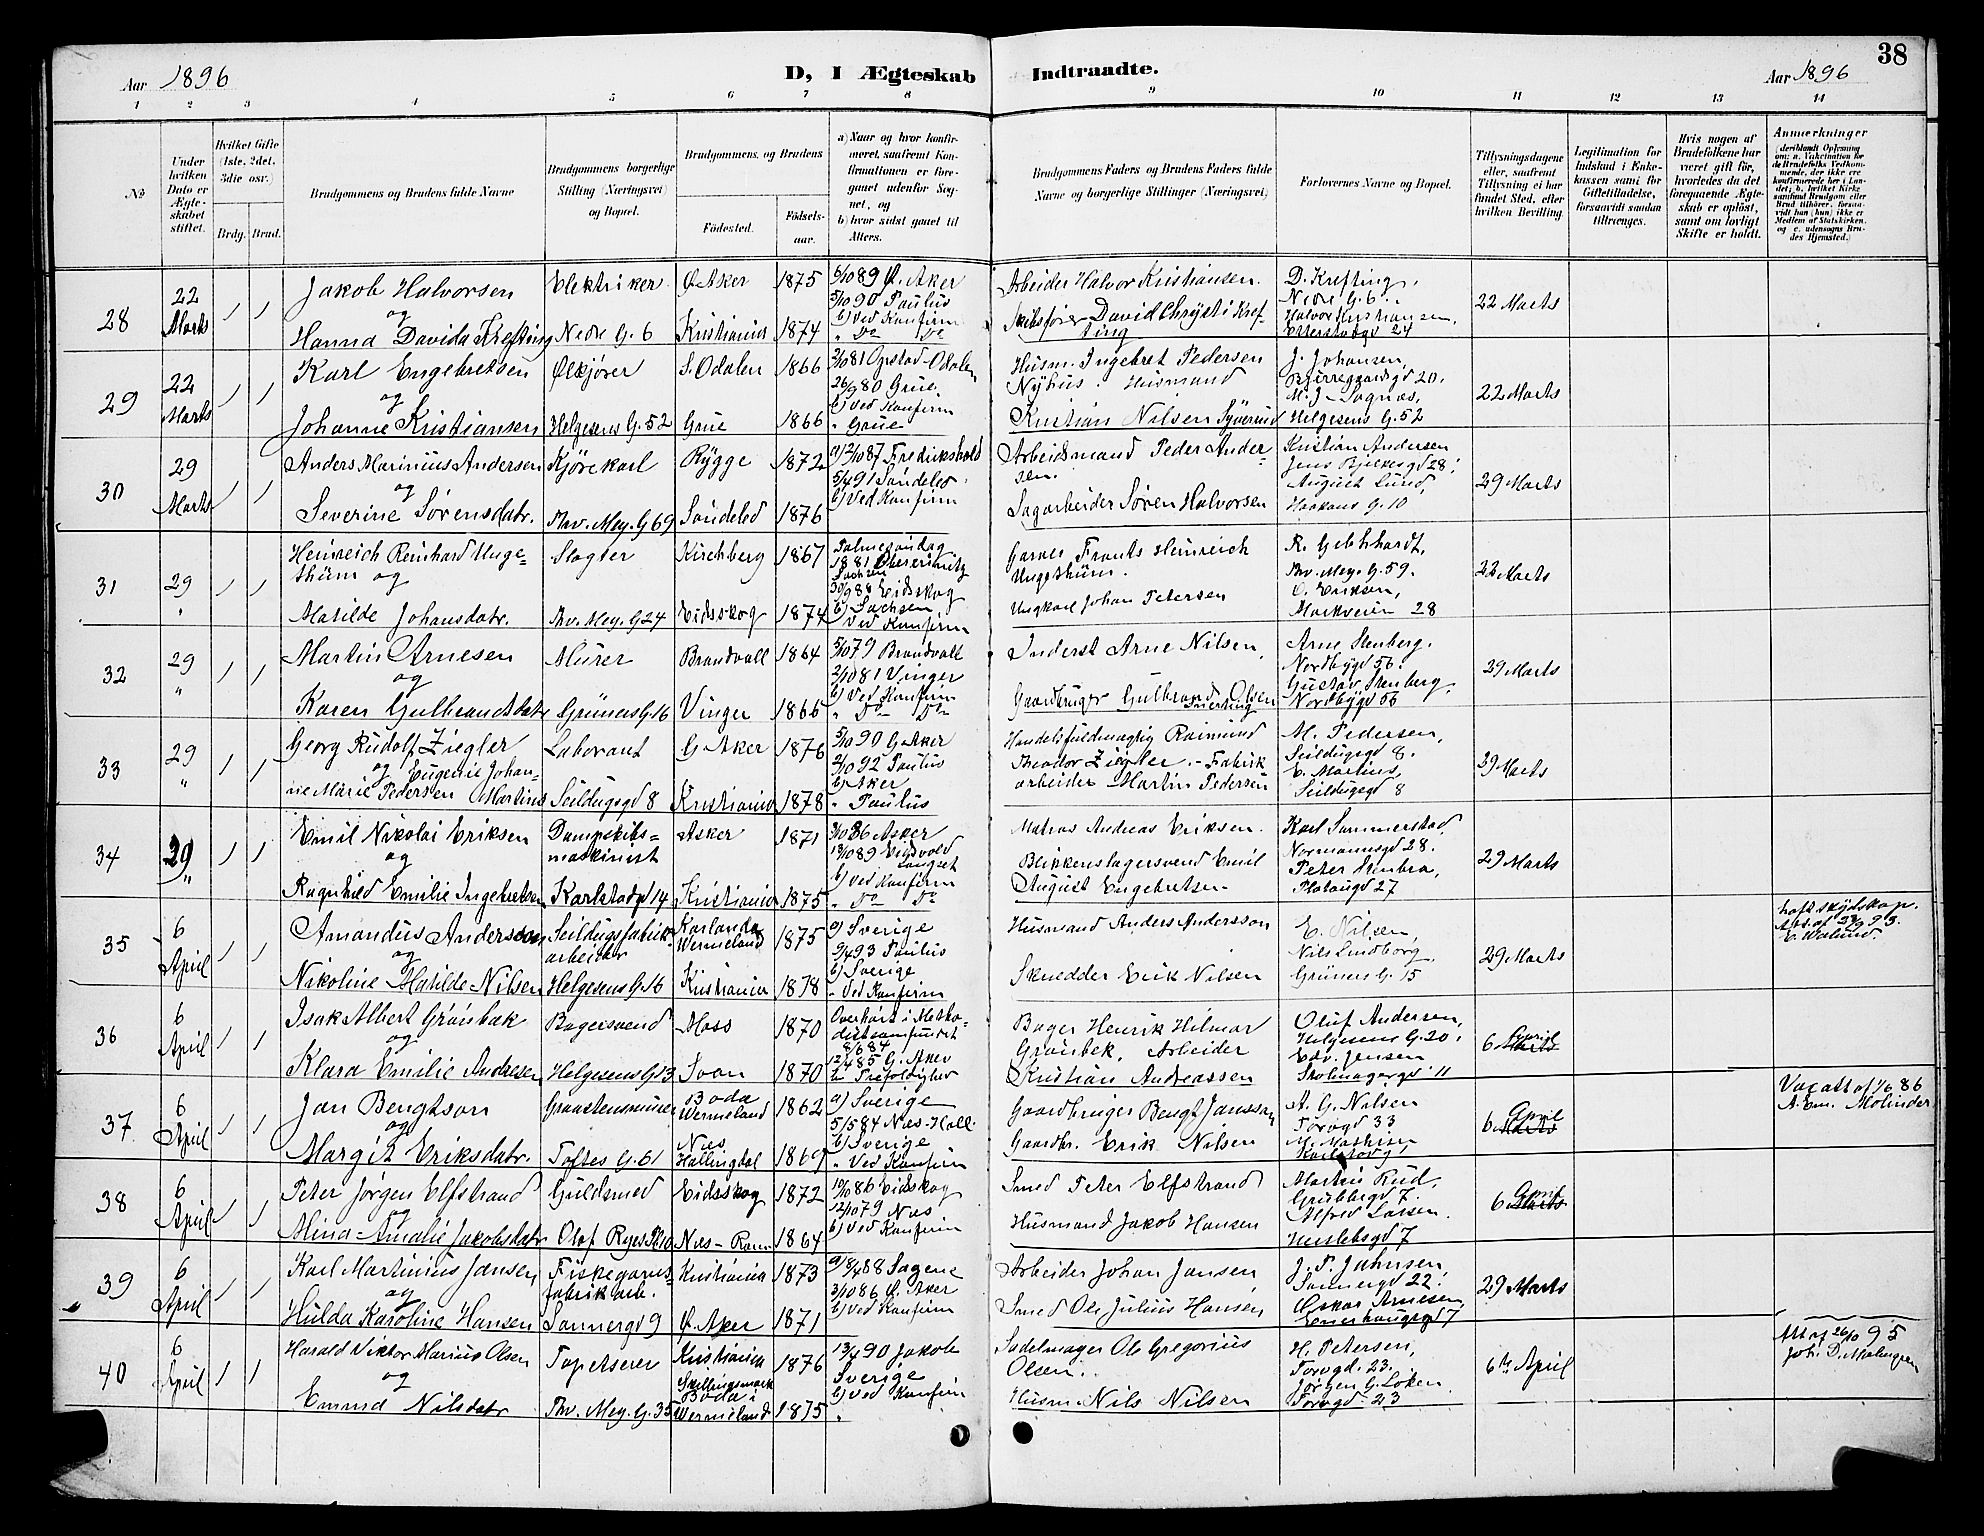 38
Aar 1896
D, I Ægteskab Indtraadte.
Aar 1896
1 2 3 4 5 6 7 8 9 10 11 12 13 14
No
Under hvilken Dato er Ægteskabet stiftet.
Hvilket Gifte (1ste, 2det, 3die osv.)
Brdg. Brud.
Brudgommens og Brudens fulde Navne
Brudgommens borgerlige Stilling (Næringsvei) og Bopæl.
Brudgommens og Brudens
Fødested.
Fødselsaar.
a) Naar og hvor konfirmeret, saafremt Konfirmationen er foregaaet udenfor Sognet, og
b) hvor sidst gaaet til Alters.
Brudgommens Faders og Brudens Faders fulde Navne og borgerlige Stillinger (Næringsvei)
Forlovernes Navne og Bopæl.
Tillysningsdagene eller, saafremt Tillysning ei har fundet Sted, efter hvilken Bevilling.
Legitimation for Indskud i Enkekassen samt for Giftetilladelse, forsaavidt saadan tiltrænges.
Hvis nogen af Brudefolkene har været gift før, hvorledes da det foregaaende Ægteskab er opløst, samt om lovligt Skifte er holdt.
Anmerkninger
(deriblandt Oplysning om: a. Vakcination for de Brudefolks Vedkommende, der ikke ere konfirmerede her i Landet; b. hvilket Kirkesamfund Brudgom eller Brud tilhører, forsaavidt han (hun) ikke er Medlem af Statskirken, og c. udensogns Brudes Hjemsted.)
28 22 Marts / / Jakob Halvorsen Elektriker Ø. Aker 1875 5/10 89 Ø. Aker Arbeider Halvor Kristiansen. D. Krefting, 22 Marts
og 5/10 90 Paulus Nedre G. 6.
b) Ved Konfirm. Skibsfører David Chrysti Kref- Halvor Kristiansen,
Hanna Davida Krefting Nedre G. 6 Kristiania 1874 " Do Do ting Etterstadgd 24
29 22 Marts / / Karl Engebretsen Ølkjører S. Odalen 1866 2/10 81 Opstad-Odalen Husm. Ingebret Pedersen J. Johansen, 22 Marts
og 26/9 80 Grue. Nyhus. Husmand Bjerregaardsgd 20.
b) Ved Konfirm M. J. Sognæs,
Johanne Kristiansen Helgesens G. 52 Grue 1866 " Grue Kristian Nilsen Helgesens G. 52
30 29 Marts / / Anders Marinius Andersen Kjørekarl Rygge 1872 a) 2/10 87 Fredrikshald Arbeidsmand Peder Ander- Kristian Andersen 29 Marts
og 5/4 91 Søndeled sen. Jens Bjelkesgd 28.
b) Ved Konfirm August Lund,
Severine Sørensdatr. Thv. Mey. G. 69 Søndeled 1876 Sagarbeider Søren Halvorsen Haakons G. 10
31 29 " / / Heinreich Reinhard Unge- Slagter Kirchberg 1867 Palmesøndag Garver Frants Heinreich R. Gebhhardt, 22 Marts
thüm og 1881 Sachsen Ungethüm. Thv. Mey. G. 59.
Eidskog O. Eriksen,
Matilde Johansdatr. Thv. Mey. G 24 Eidskog 1874 b) Sachsen, Ved Konfirm Ungkarl Johan Petersen Markveien 28
32 29 " / / Martin Arnesen Murer Brandvall 1864 5/10 79 Brandvall Inderst Arne Nilsen, Arne Stenberg. 29 Marts
og 2/10 81 Vinger Nordbygd 56.
b) Ved Konfirm Gaardbruger Gulbrand Olsen Gustav Stenberg,
Karen Gulbrandsdatr Grüners G 16 Vinger 1866 " Do Do Nordbygd 56
33 29 " / / Georg Rudolf Ziegler Laborant G. Aker 1876 5/10 90 G. Aker Handelsfuldmægtig Raimund M. Pedersen, 29 Marts
og Eugenie Johan- 2/10 92 Paulus Theodor Ziegler. - Fabrik Seildugsgd 8.
b) Aker E. Martins,
ne Marie Pedersen Martins Seildugsgd 8 Kristiania 1878 " Paulus arbeider Martin Pedersen Seildugsgd 8
34 29 " / / Emil Nikolai Eriksen Dampskibs- Asker 1871 3/10 86 Asker Matros Andreas Eriksen. Karl Sommerstad, 29 Marts
og maskinist 13/10 89 Eidsvold Langset Blikkenslagersvend Emil Normannsgd 28.
b) Ved Konfirm Peter Stenbra,
Ragnhild Emilie Ingebretsen Karlstadgd 14 Kristiania 1875 " Do Do August Engebretsen Platougd 27
35 6 April / / Amandus Andersson Seildugsfabrik- Karlanda Wermeland 1875 a) Sverige Husmand Anders Andersson E. Nilsen, 29 Marts
og arbeider 9/4 93 Paulus Nils Lindborg.
b) Sverige
Nikoline Matilde Nilsen Helgesens G 16 Kristiania 1878 " Ved Konfirm Skrædder Erik Nilsen Grüners G. 15
36 6 April / / Isak Albert Grønbæk Bagersvend Moss 1870 Overhørt i Metho- Bager Henrik Hilmar Oluf Andersen, 6 April
og distsamfundet Grønbek. Arbeider Helgesens G. 20.
12/4 85 G. Aker Edv. Jensen
Klara Emilie Andresen Helgesens G 13 Svan 1870 b) Trefoldighed Kristian Andreassen Skolmagergd 11
37 6 April / / Jan Bengtson Graastensmurer Boda Wermeland 1862 a) Sverige Gaardbruger Bengt Jansson A. G. Nilsen 6 April Vac att af 1/6 86
og 5/5 84 Næs-Hall. Torvgd 33 A. Em. Molinder
b) Sverige M. Mathisen
Margit Eriksdatr. Toftes G. 61 Næs Hallingdal 1869 " Ved Konfirm Gaardbr. Erik Nilsen Karlstadgd
38 6 April / / Peter Jørgen Elfstrand Guldsmed Eidsskog 1872 10/10 86 Eidskog Smed Peter Elfstrand Martin Rud, 6 April
og 12/10 79 Næs Grubbegd 7.
b) Ved Konfirm Alfred Larsen.
Mina Amalie Jakobsdatr Olaf Ryes Pl 10 Næs - Rom. 1864 Husmand Jakob Hansen Herslebsgd 7
39 6 April / / Karl Martinius Jansen Fiskegarns- Kristiania 1873 a) 8/4 88 Sagene Arbeider Johan Jansen J. P. Jahnsen, 29 Marts
og fabrikarb. 3/10 86 Ø. Aker Sannergd 22.
b) Ved Konfirm Oskar Arnesen,
Hulda Karoline Hansen Sannergd 9 Ø. Aker 1871 Smed Ole Julius Hansen Enerhauggd 7
40 6 April / / Harald Viktor Marius Olsen Tapetserer Kristiania 1876 13/4 90 Jakob Sadelmager Ole Gregorius H. Petersen, 6te April Att af 26/10 95
og Skillingsmark Sverige Olsen. Torvgd. 23. Joh. D. Malmgren
Boda i b) Ved Konfirm Jørgen G. Løken
Emma Nilsdatr Thv. Mey. G. 35 Wermeland 1875 " Husm. Nils Nilsen Torvgd. 23